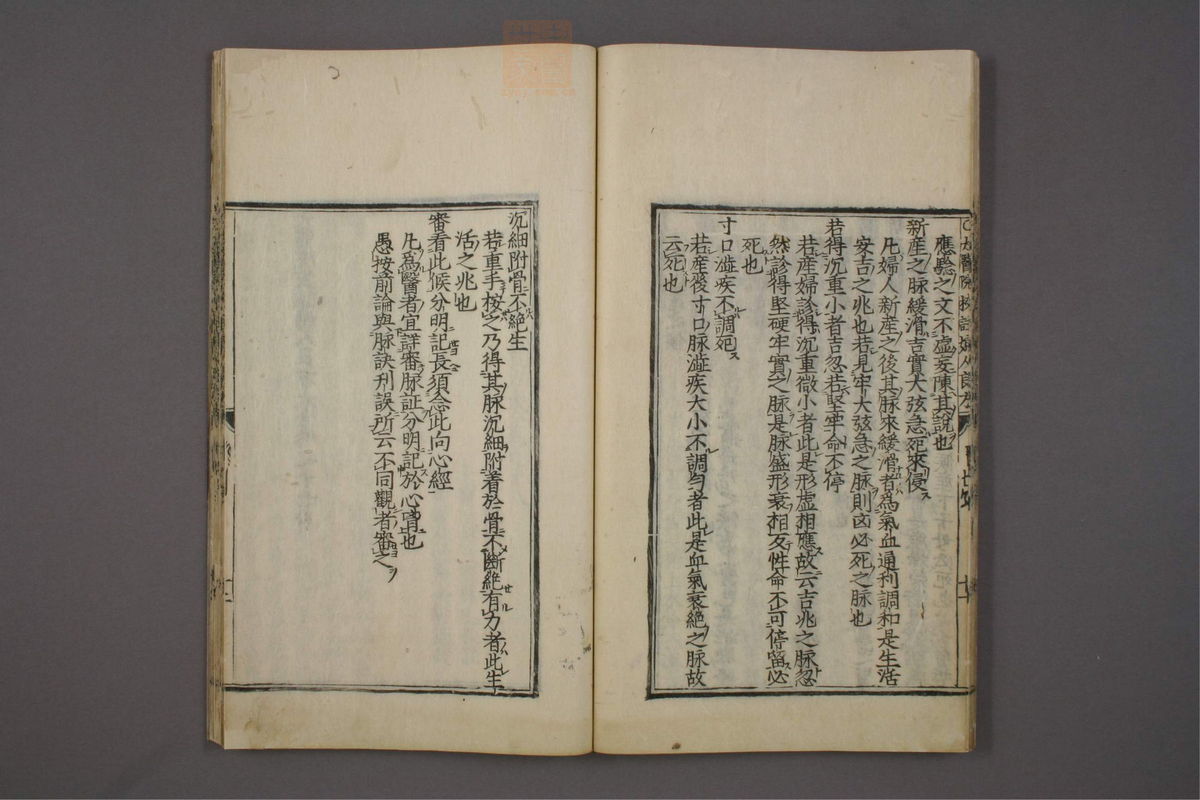 應驗之文不虛妄陳其說也
新産之脉緩滑吉實大弦急死來侵
凡婦人新産之後其脉來緩滑者為氣血通利調和是生活
安吉之兆也若見牢大弦急之脉則凶必死之脉也
若得沉重小者吉忽若堅牢命不停
若産婦診得沉重微小者此是形虛相應故云吉兆之脉忽
然診得堅硬牢實之脉是脉盛形衰相反性命不可停留必
死也
寸口澁疾不調死
若産後寸口脉澁疾大小不調勻者此是血氣衰絕之脉故
云死也
沉細附骨不絕生
若重手按之乃得其脉沉細附着於骨不斷絕有力者此生
活之兆也
審看此候分明記長須念此向心經
凡為醫者宜詳審脉証分明記於心胷也
愚按前論與脉訣刋誤所云不同觀者審之